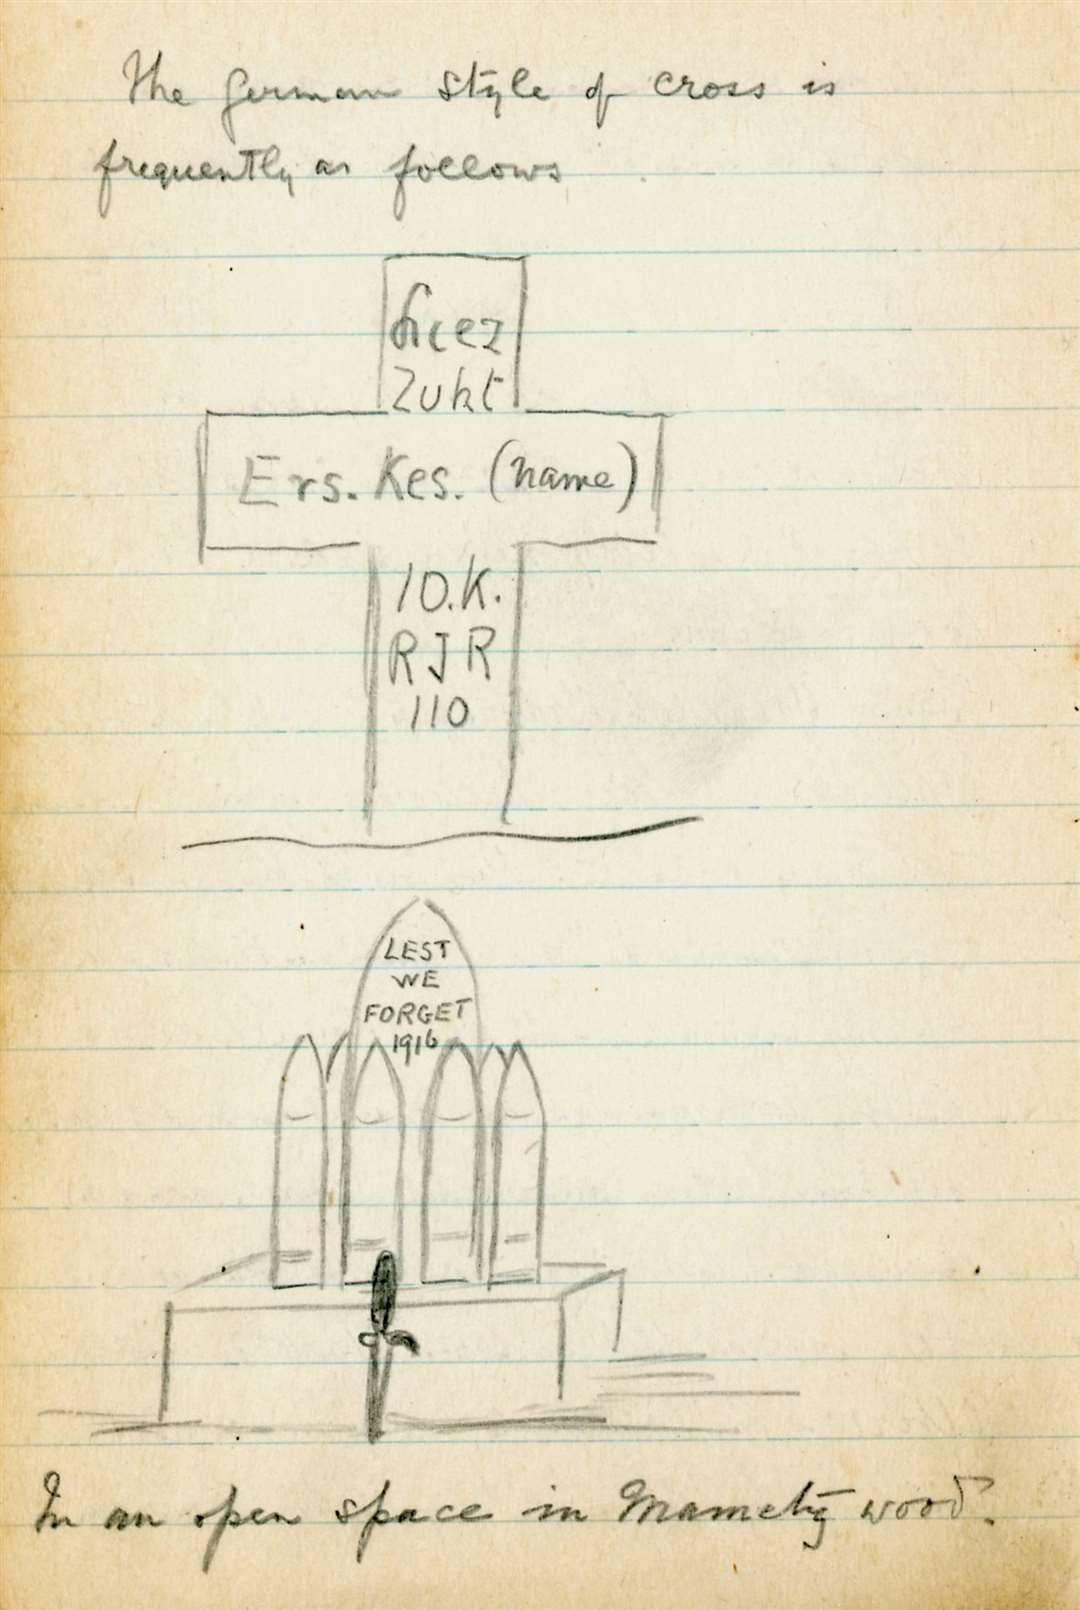 The German style of cross is
frequently as follows
hiez
Zuht
Ers. Kes. (name)
10.K.
RJR
110
LEST
WE
FORGET
1916
In an open space in Mametz wood.